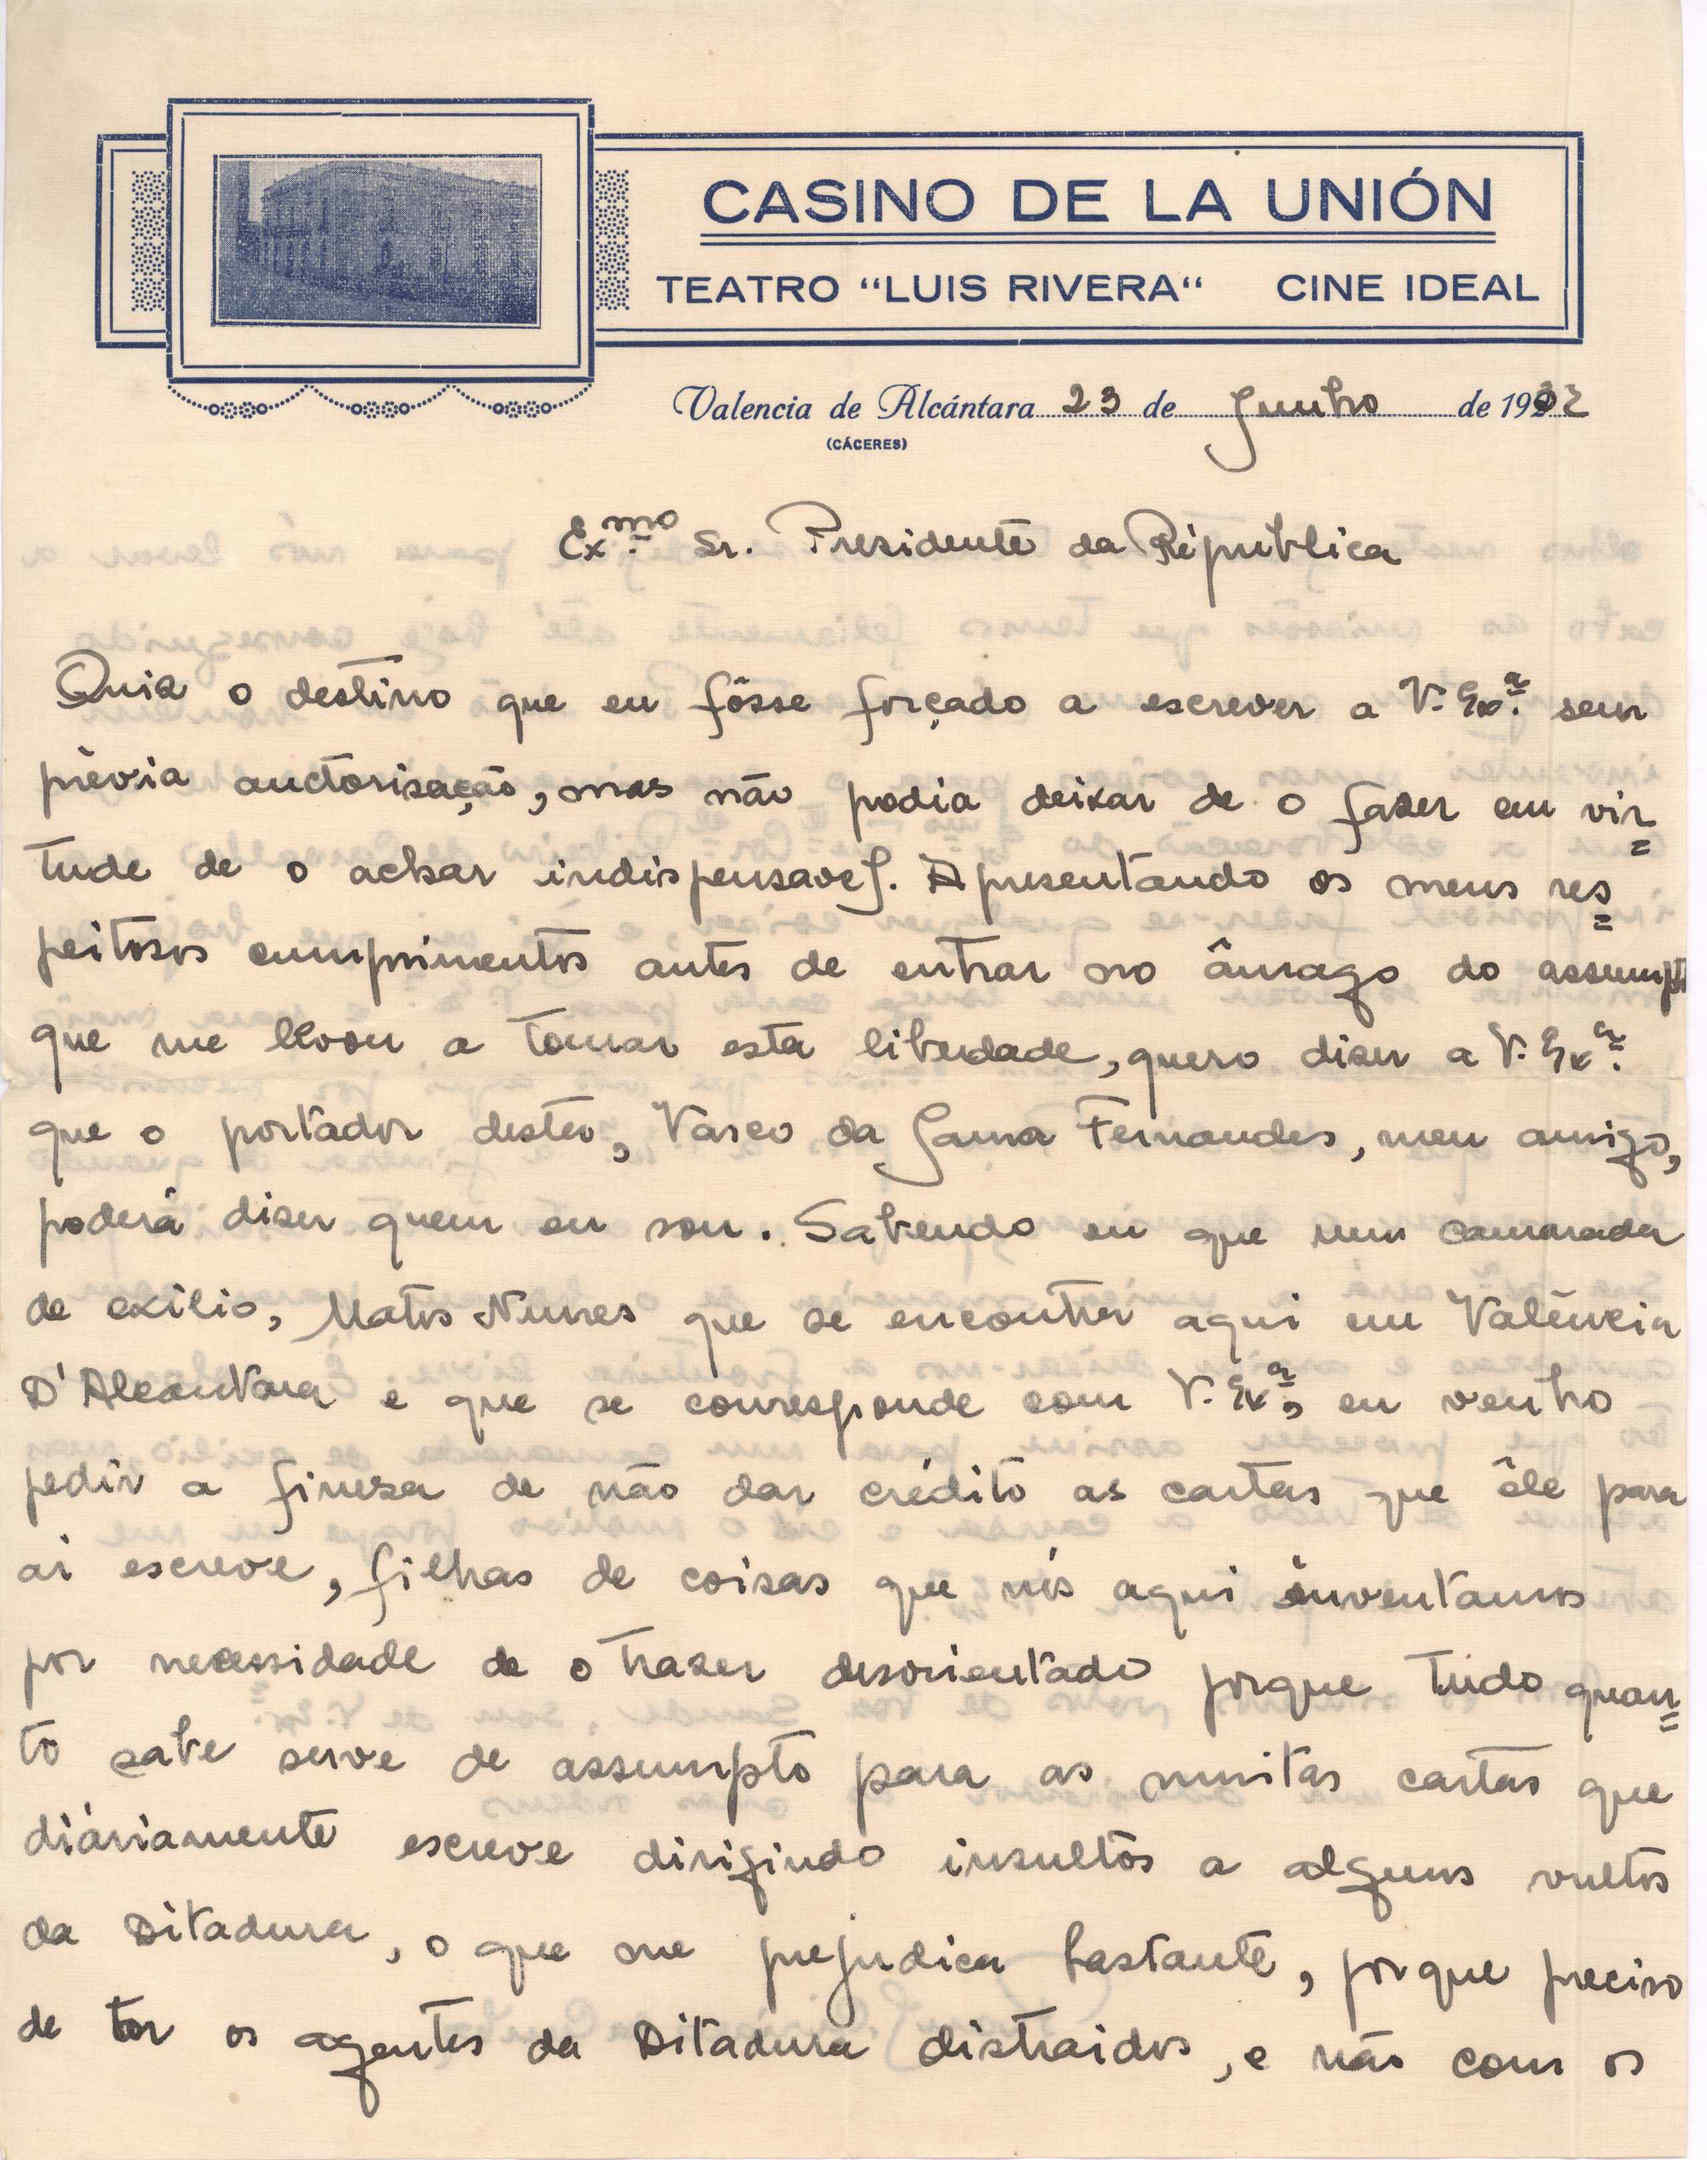 CASINO DE LA UNIÓN
TEATRO "LUIS RIVERA" CINE IDEAL
Valencia de Alcántara 23 de Junho de 1932
(CÁCERES)
Exmo. Sr. Presidente da Républica
Quiz o destino que eu fôsse forçado a escrever a V. Exª. sem
prèvia auctorisação, mas não podia deixar de o faser em vir=
tude de o achar indispensavel. Apresentando os meus res=
peitosos cumprimentos antes de entrar no âmago do assumpto
que me levou a tomar esta liberdade, quero diser a V. Exª.
que o portador desta, Vasco da Gama Fernandes, meu amigo,
poderá diser quem eu sou. Sabendo eu que um camarada
de exílio, Matos Nunes que se encontra aqui em Valência
D'Alcantara e que se corresponde com V. Exª, eu venho
pedir a finesa de não dar crédito as cartas que êle para
ai escreve, filhas de coisas que nós aqui inventamos
por necessidade de o traser desorientado porque tudo quan=
to sabe serve de assumpto para as muitas cartas que
diáriamente escreve dirigindo insultos a alguns vultos
da Ditadura, o que me prejudica bastante, porque preciso
de ter os agentes da Ditadura distraidos, e não com os